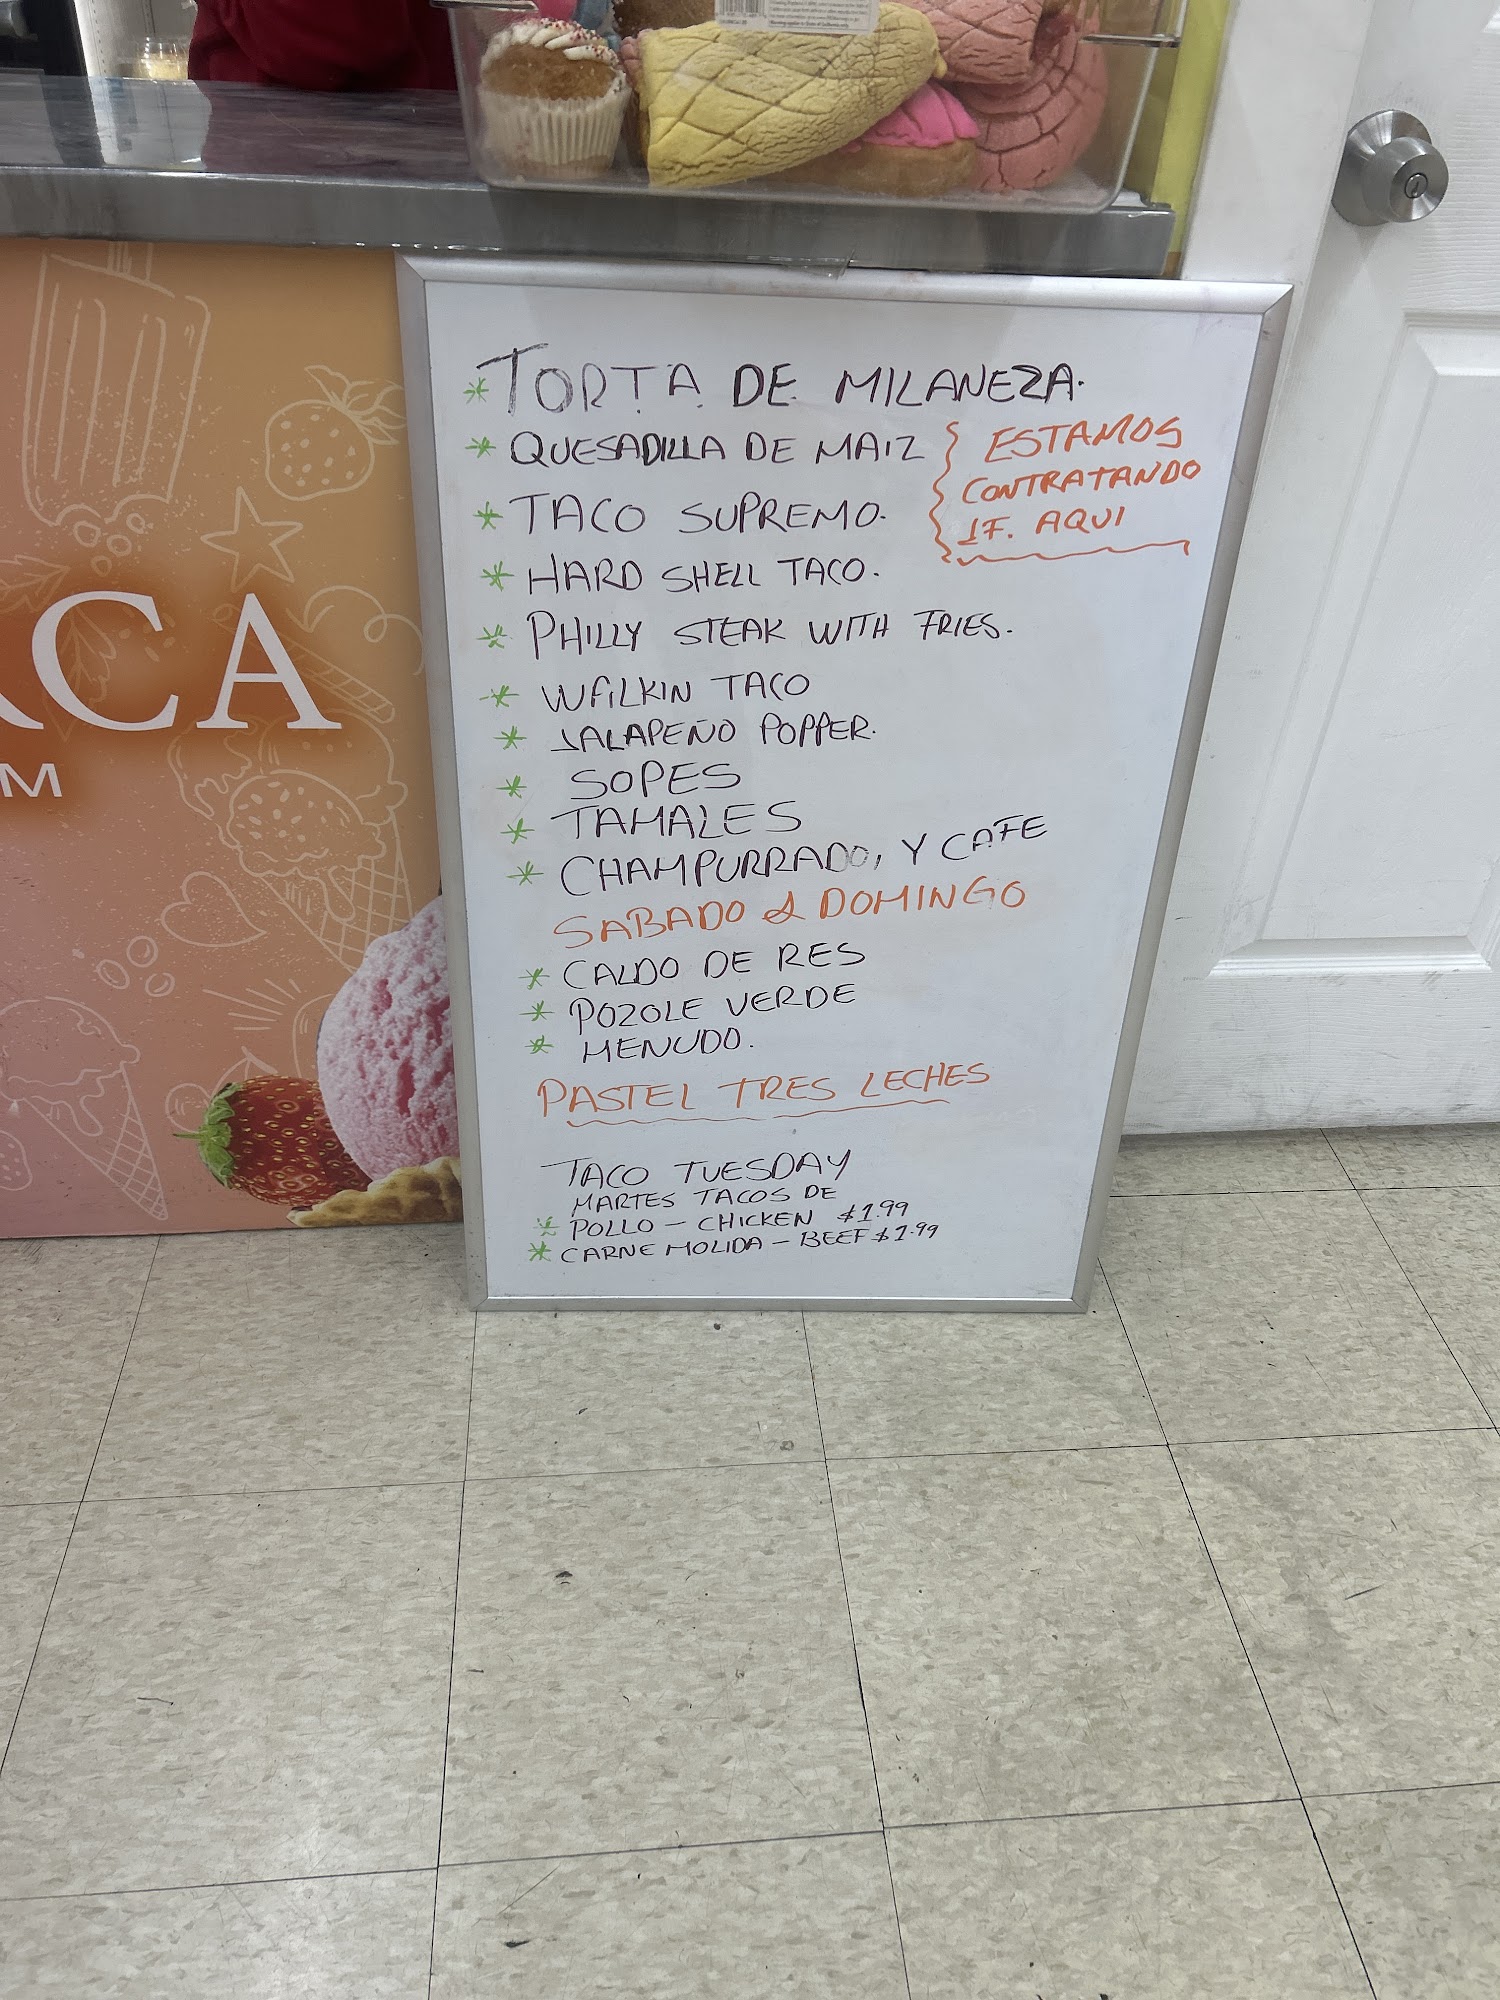 * TORTA DE MILANEZA.
* QUESADILLA DE MAIZ
ESTAMOS
CONTRATANDO
IF. AQUI
* TACO SUPREMO.
* HARD SHELL TACO.
* PHILLY STEAK WITH FRIES.
* WAILKIN TACO
* JALAPEÑO POPPER.
* SOPES
* TAMALES
* CHAMPURRADO, Y CAFE
SABADO & DOMINGO
* CALDO DE RES
* POZOLE VERDE
* MENUDO.
PASTEL TRES LECHES
TACO TUESDAY
MARTES TACOS DE
* POLLO - CHICKEN $1.99
* CARNE MOLIDA - BEEF $1.99
CA
M